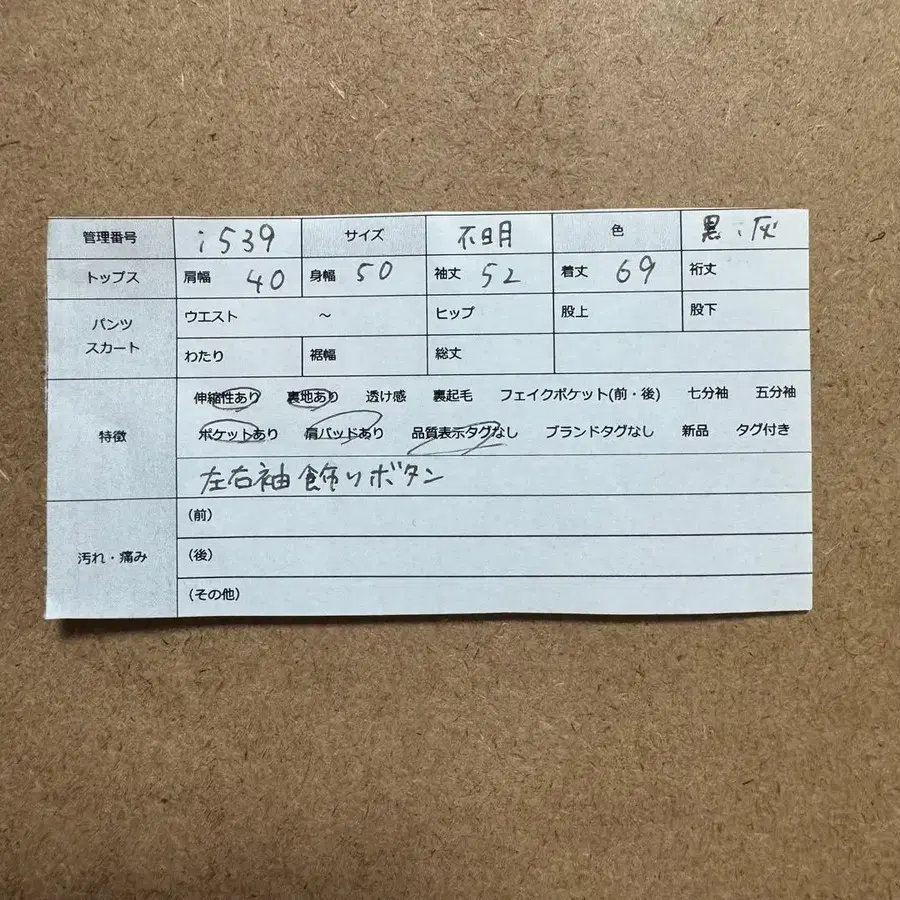 管理番号 i539 サイズ 不明 色 黒、灰
トップス 肩幅 40 身幅 50 袖丈 52 着丈 69 裄丈
パンツ スカート ウエスト ～ ヒップ 股上 股下
わたり 裾幅 総丈
特徴 伸縮性あり 裏地あり 透け感 裏起毛 フェイクポケット(前・後) 七分袖 五分袖
ポケットあり 肩パッドあり 品質表示タグなし ブランドタグなし 新品 タグ付き
左右袖飾りボタン
汚れ・痛み (前)
(後)
(その他)